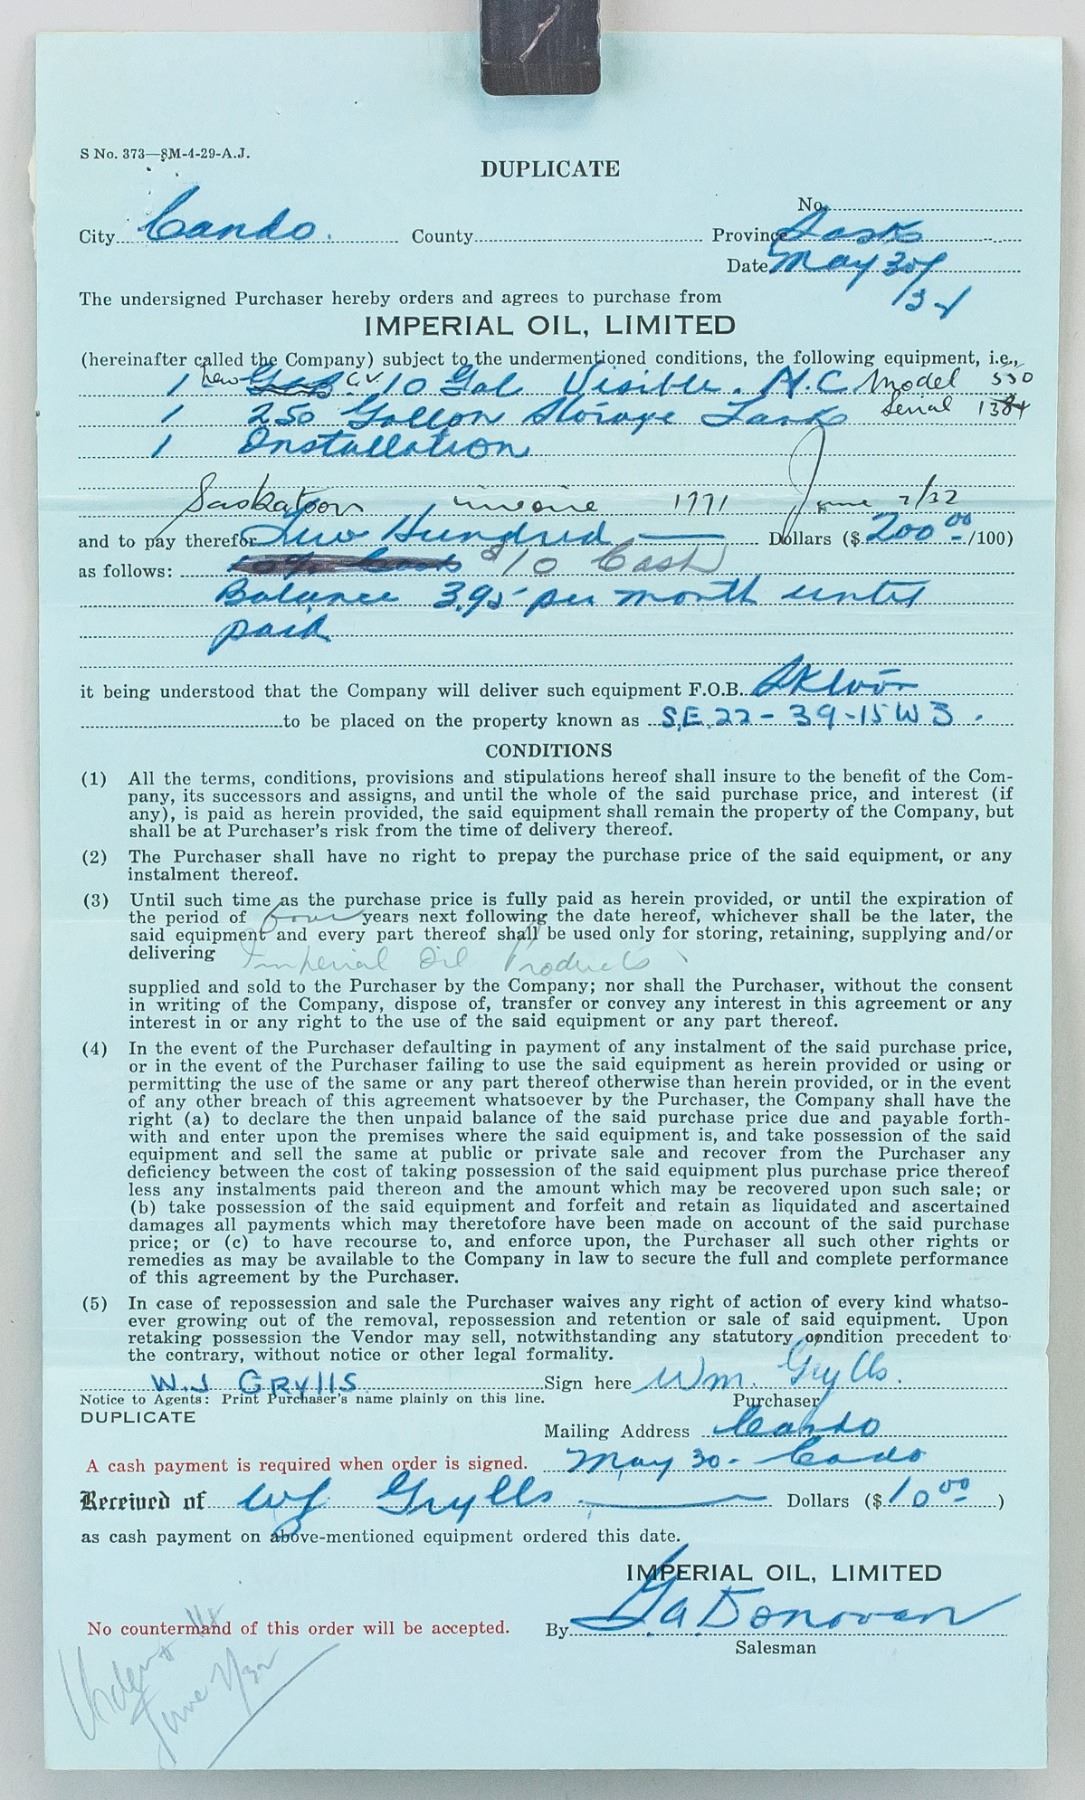 S No. 373—8M-4-29-A.J.
DUPLICATE
No.
City Cando. County Province Sask
Date May 30/
/31
The undersigned Purchaser hereby orders and agrees to purchase from
IMPERIAL OIL, LIMITED
(hereinafter called the Company) subject to the undermentioned conditions, the following equipment, i.e.,
1 new C.V. 10 Gal Visible. H.C Model 530
1 250 Gallon Storage Tank Serial
1 Installation
Saskatoon invoice 1771 June 2/32
and to pay therefor Two Hundred Dollars ($200 00/100)
as follows: $10 Cash
Balance 3.95 per month until
paid
it being understood that the Company will deliver such equipment F.O.B.
to be placed on the property known as S.E. 22-39-15 W 3.
CONDITIONS
(1) All the terms, conditions, provisions and stipulations hereof shall insure to the benefit of the Com-
pany, its successors and assigns, and until the whole of the said purchase price, and interest (if
any), is paid as herein provided, the said equipment shall remain the property of the Company, but
shall be at Purchaser's risk from the time of delivery thereof.
(2) The Purchaser shall have no right to prepay the purchase price of the said equipment, or any
instalment thereof.
(3) Until such time as the purchase price is fully paid as herein provided, or until the expiration of
the period of four years next following the date hereof, whichever shall be the later, the
said equipment and every part thereof shall be used only for storing, retaining, supplying and/or
delivering Imperial Oil Products
supplied and sold to the Purchaser by the Company; nor shall the Purchaser, without the consent
in writing of the Company, dispose of, transfer or convey any interest in this agreement or any
interest in or any right to the use of the said equipment or any part thereof.
(4) In the event of the Purchaser defaulting in payment of any instalment of the said purchase price,
or in the event of the Purchaser failing to use the said equipment as herein provided or using or
permitting the use of the same or any part thereof otherwise than herein provided, or in the event
of any other breach of this agreement whatsoever by the Purchaser, the Company shall have the
right (a) to declare the then unpaid balance of the said purchase price due and payable forth-
with and enter upon the premises where the said equipment is, and take possession of the said
equipment and sell the same at public or private sale and recover from the Purchaser any
deficiency between the cost of taking possession of the said equipment plus purchase price thereof
less any instalments paid thereon and the amount which may be recovered upon such sale; or
(b) take possession of the said equipment and forfeit and retain as liquidated and ascertained
damages all payments which may theretofore have been made on account of the said purchase
price; or (c) to have recourse to, and enforce upon, the Purchaser all such other rights or
remedies as may be available to the Company in law to secure the full and complete performance
of this agreement by the Purchaser.
(5) In case of repossession and sale the Purchaser waives any right of action of every kind whatso-
ever growing out of the removal, repossession and retention or sale of said equipment. Upon
retaking possession the Vendor may sell, notwithstanding any statutory condition precedent to
the contrary, without notice or other legal formality.
W.J GRYllS Sign here Wm. Grylls.
Notice to Agents: Print Purchaser's name plainly on this line. Purchaser
DUPLICATE
Mailing Address Cando
A cash payment is required when order is signed. May 30 - Cando
Received of WJ Grylls Dollars ($10 00)
as cash payment on above-mentioned equipment ordered this date.
IMPERIAL OIL, LIMITED
No countermand of this order will be accepted. By G.A. Donovan
Salesman
June